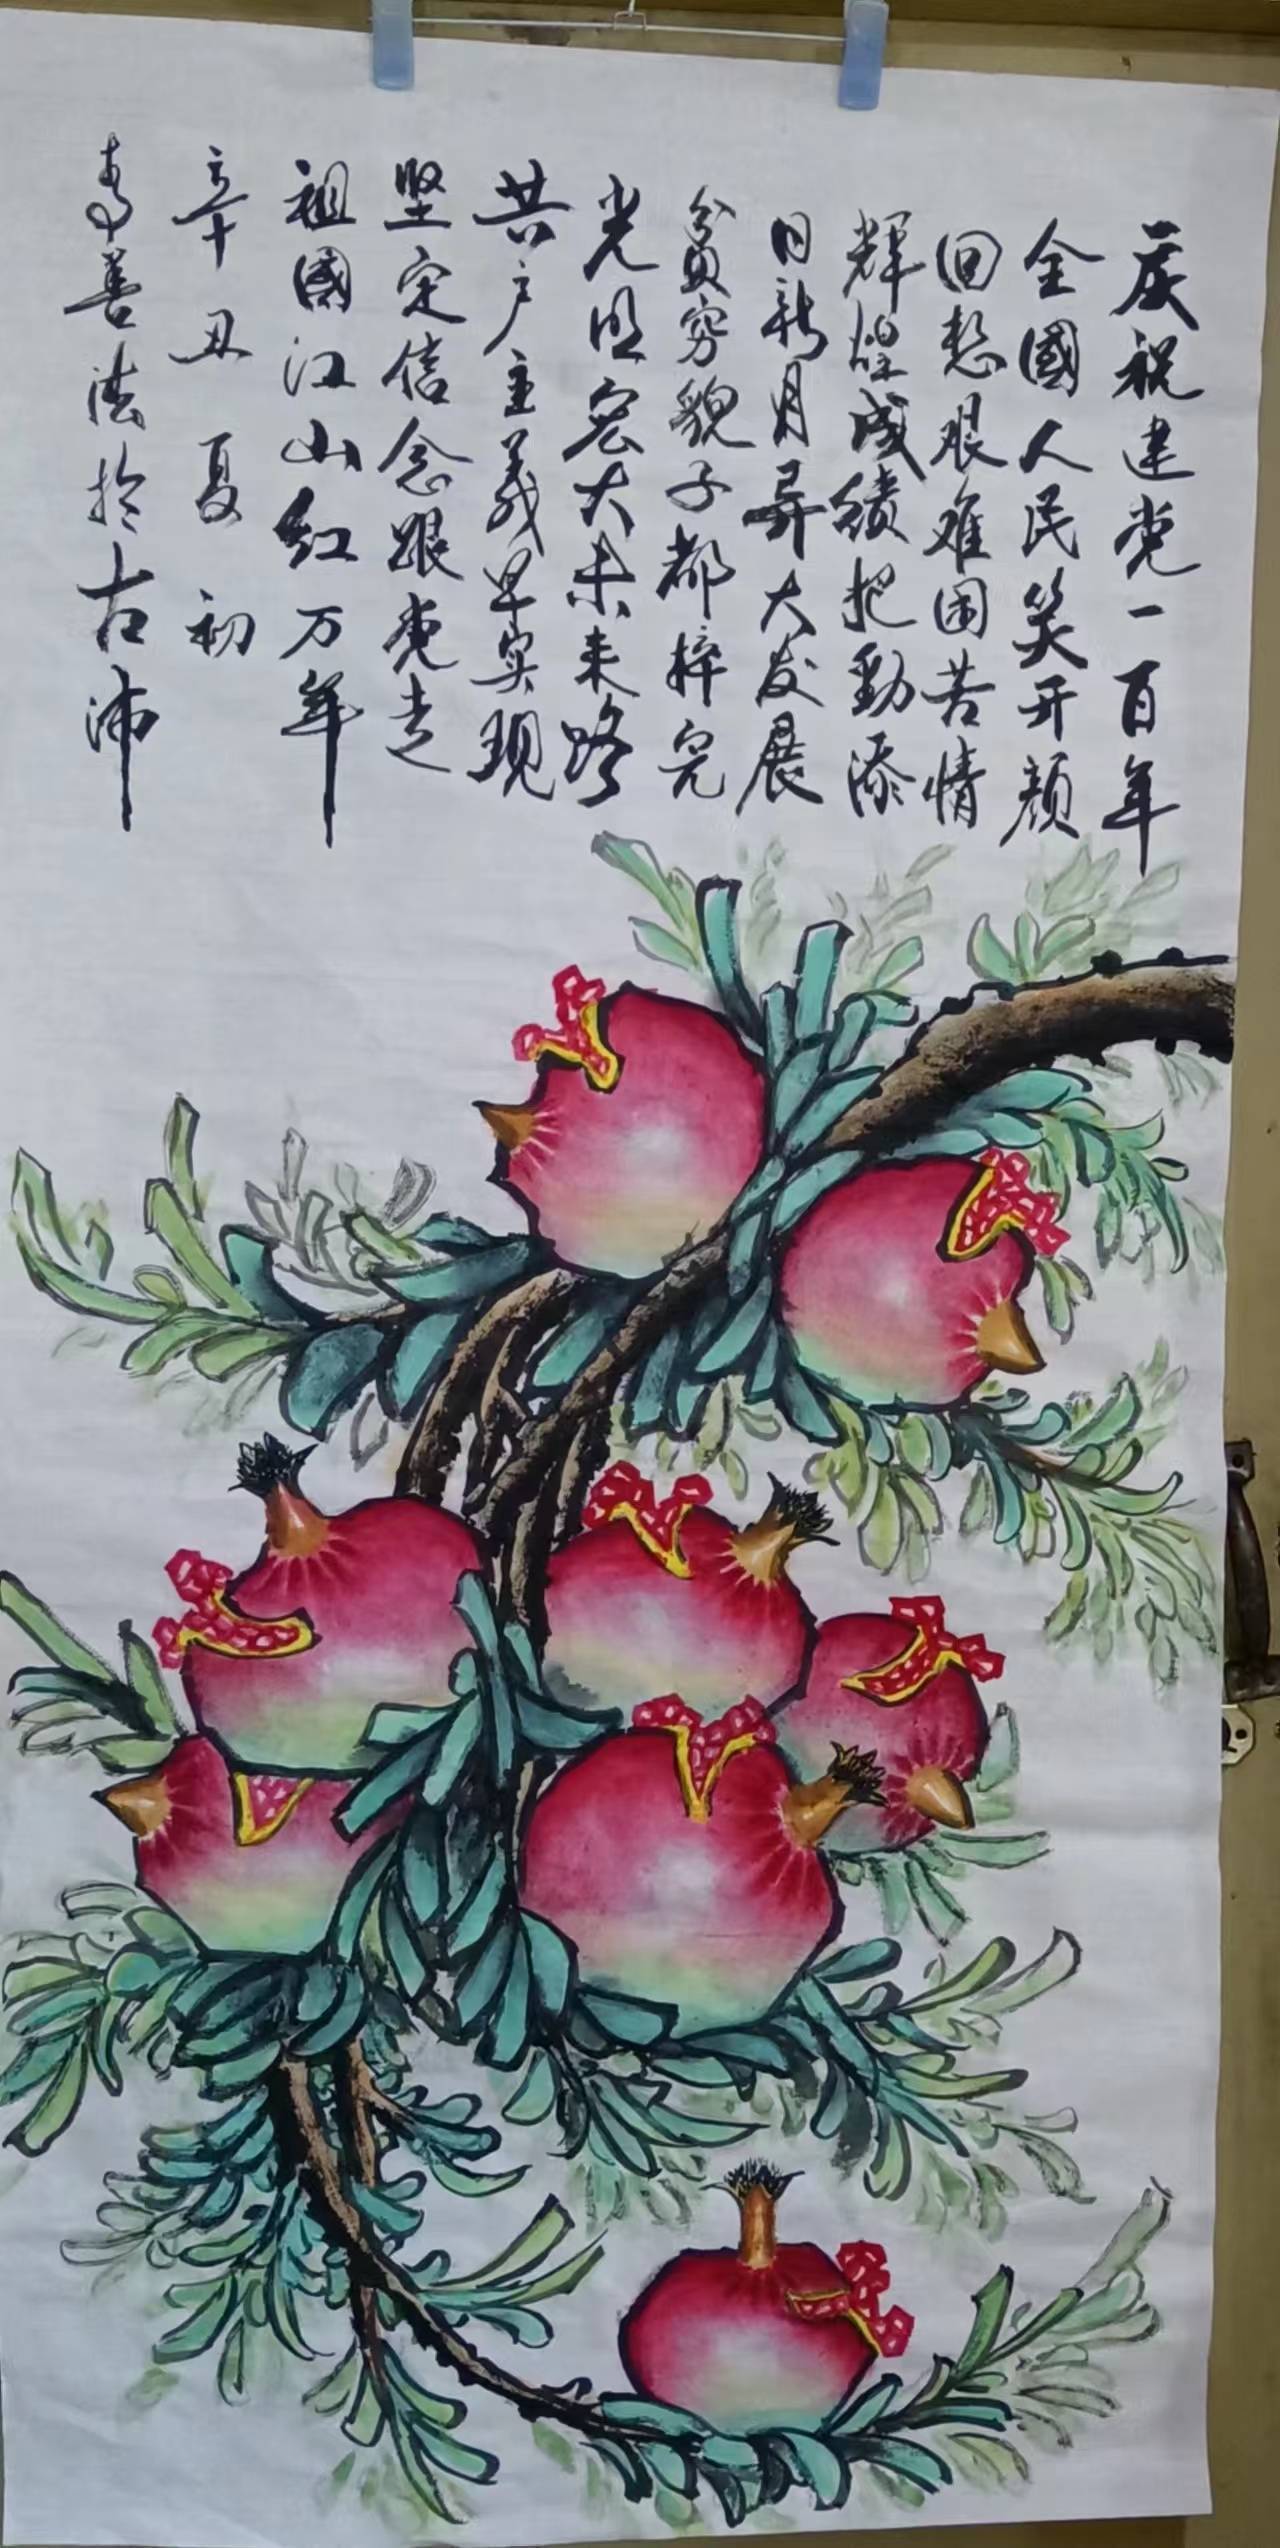 庆祝建党一百年
全國人民笑开颜
回想艰难困苦情
辉煌成绩把劲添
日新月异大发展
贫穷貌子都摔完
光明宏大未来路
共产主义早实现
坚定信念跟党走
祖國江山红万年
辛丑夏初
善法於古沛